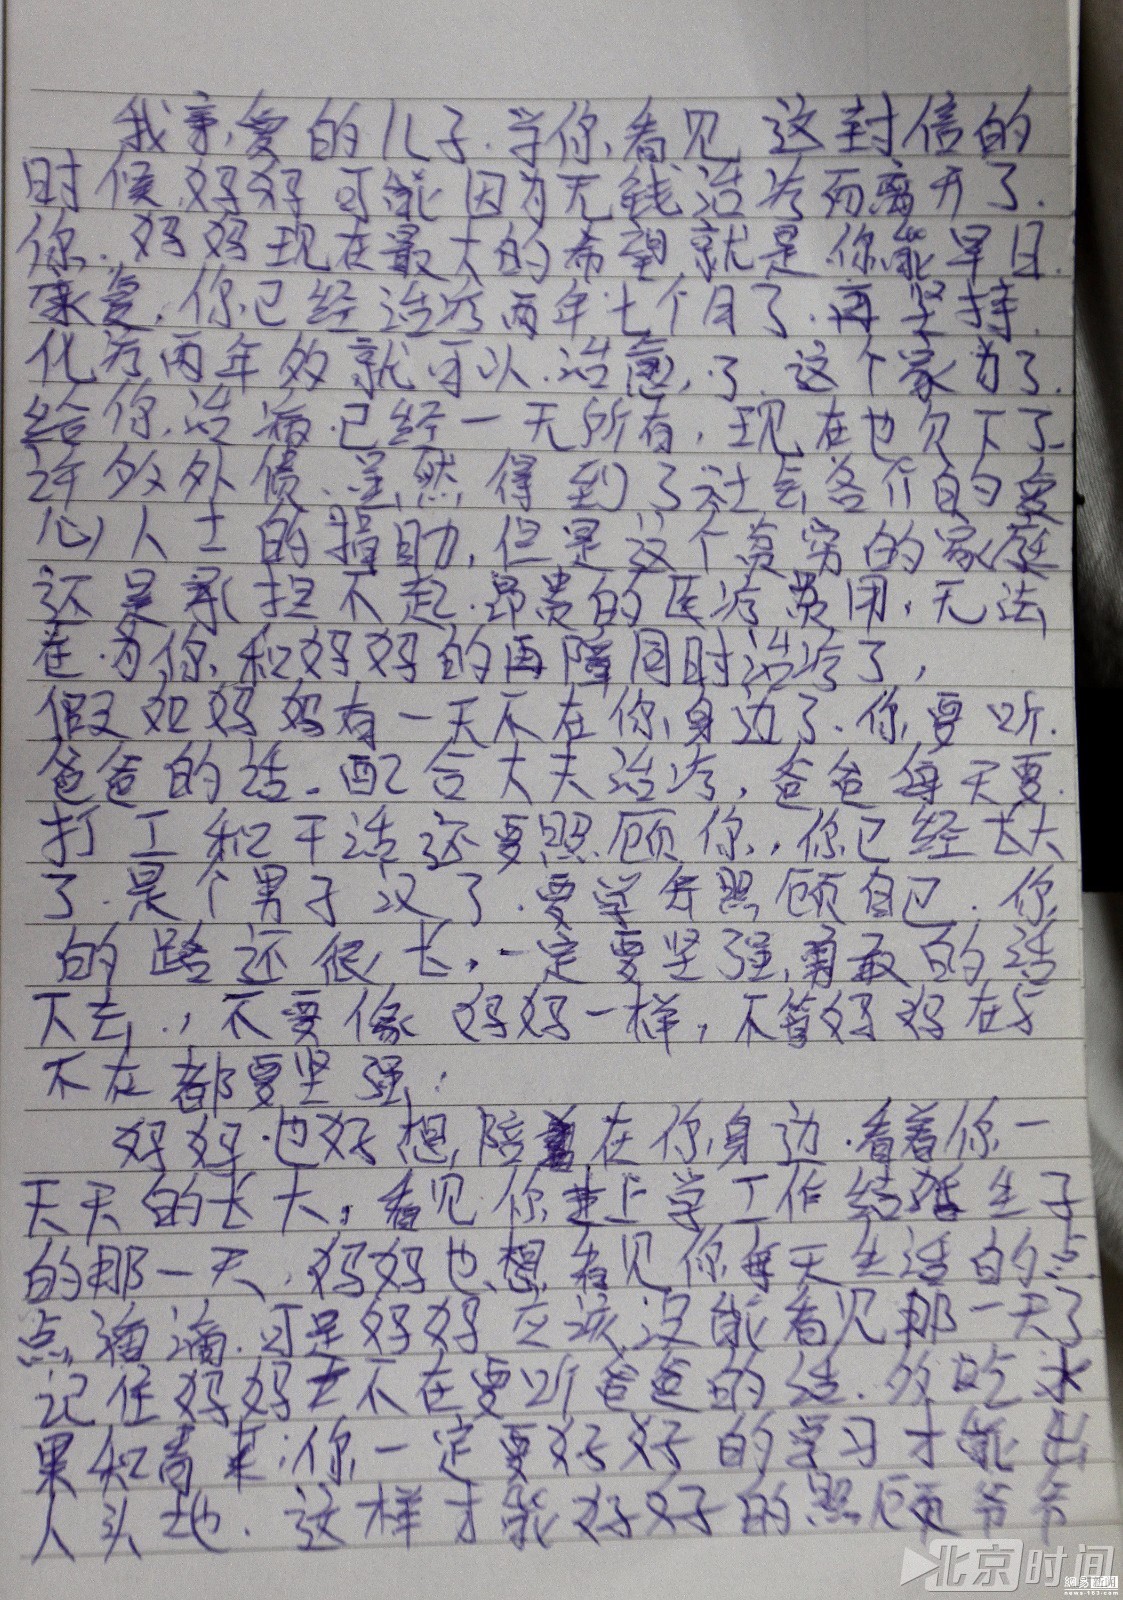 我亲爱的儿子.当你看见 这封信的
时候.妈妈可能因为无钱治疗而离开了.
你.妈妈现在最大的希望就是你能早日.
康复.你已经治疗两年七个月了.再坚持.
化疗两年多就可以.治愈.了.这个家为了.
给你.治病.已经一无所有,现在也欠下了
许多外债.虽然得到了社会各个的爱
心人士的捐助,但是这个贫穷的家庭
还是承担不起.昂贵的医疗费用,无法
在.为你.和妈妈的同时治疗了,
假如妈妈有一天不在你身边了.你要听.
爸爸的话.配合大夫治疗,爸爸每天要.
打工和干活还要照顾你,你已经长大
了.是个男子汉了.要学会照顾自己.你
的路还很长,一定要坚强,勇敢的活
下去,,不要像妈妈一样,不管妈妈在与
不在都要坚强:
妈妈.也好想,陪着在你身边.看着你一
天天的长大,看见你上学工作结婚生子
的那一天.妈妈也想看见你每天生活的点
点滴滴.可是妈妈应该没能看见那一天了
记住妈妈不在要听爸爸的话.多吃水
果和青菜:你一定要好好的学习才能出
人头地.这样才能好好的照顾爷爷
北京时间
網易新闻
news.163.com